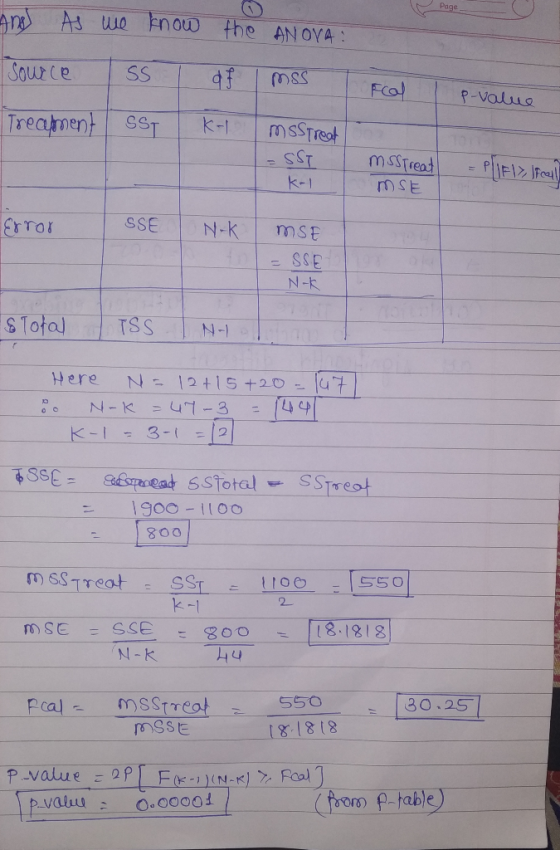 ①
Page
Ans) As we know the ANOVA:
Source SS df MSS Fcal P-value
Treatment SST K-1 MSSTreat
= SST / K-1 MSSTreat / MSE = P[|F| ≥ |Fcal|]
Error SSE N-K MSE
= SSE / N-K
STotal TSS N-1
Here N = 12+15+20 = 47
∴ N-K = 47-3 = 44
K-1 = 3-1 = 2
SSE = SSTotal - SSTreat
= 1900-1100
= 800
MSSTreat = SST / K-1 = 1100 / 2 = 550
MSE = SSE / N-K = 800 / 44 = 18.1818
Fcal = MSSTreat / MSSE = 550 / 18.1818 = 30.25
P-value = 2P[F(K-1)(N-K) ≥ Fcal]
p.value = 0.00001 (from F-table)